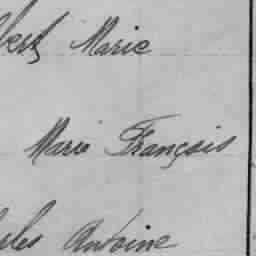 Marie
Marie François
Antoine